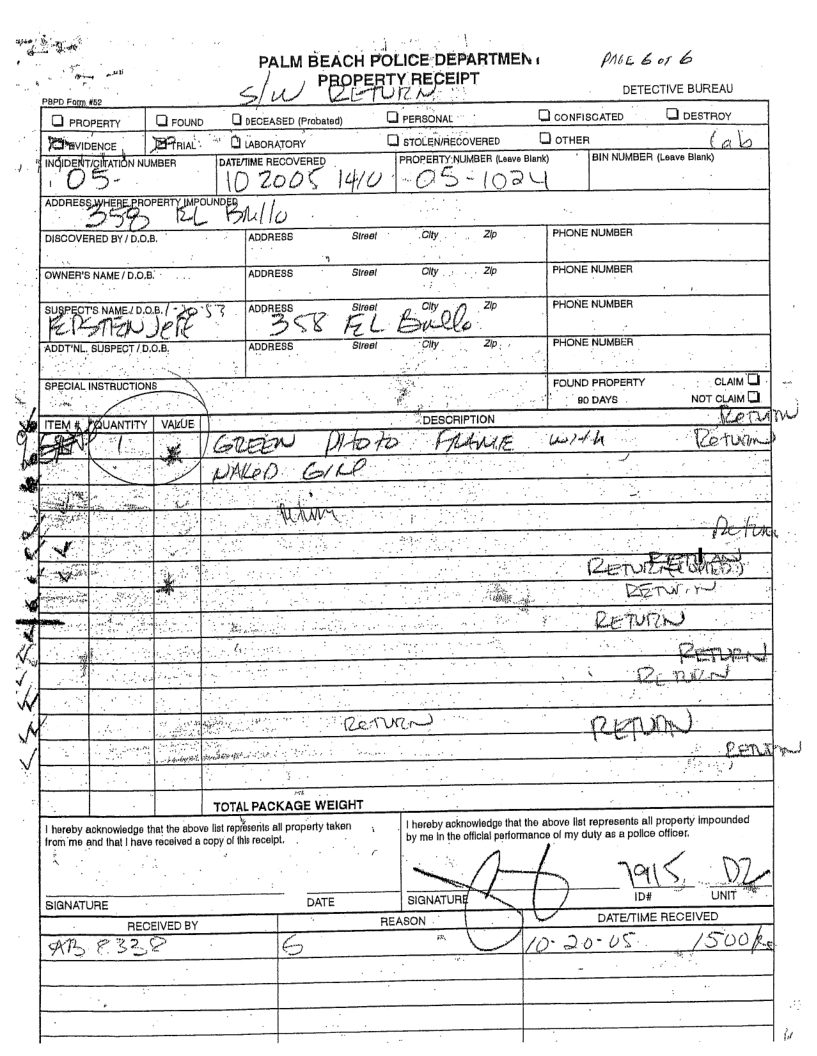 PALM BEACH POLICE DEPARTMENT
PAGE 6 of 6
PROPERTY RECEIPT
S/W RETURN
DETECTIVE BUREAU
PBPD Form #52
PROPERTY FOUND DECEASED (Probated) PERSONAL CONFISCATED DESTROY
EVIDENCE TRIAL LABORATORY STOLEN/RECOVERED OTHER Lab
INCIDENT/CITATION NUMBER DATE/TIME RECOVERED PROPERTY NUMBER (Leave Blank) BIN NUMBER (Leave Blank)
05- 10 2005 1410 05-1024
ADDRESS WHERE PROPERTY IMPOUNDED
358 EL Brillo
DISCOVERED BY / D.O.B. ADDRESS Street City Zip PHONE NUMBER
OWNER'S NAME / D.O.B. ADDRESS Street City Zip PHONE NUMBER
SUSPECT'S NAME / D.O.B. ADDRESS Street City Zip PHONE NUMBER
EPSTEIN Jeff 358 EL Brillo
ADDT'NL. SUSPECT / D.O.B. ADDRESS Street City Zip PHONE NUMBER
SPECIAL INSTRUCTIONS FOUND PROPERTY CLAIM
90 DAYS NOT CLAIM
Return
ITEM # QUANTITY VALUE DESCRIPTION
1 GREEN PHOTO FRAME with Return
NAKED GIRL
Return
Return
RETURN
RETURN
RETURN
RETURN
RETURN
RETURN RETURN
RETURN
TOTAL PACKAGE WEIGHT
I hereby acknowledge that the above list represents all property taken
from me and that I have received a copy of this receipt.
I hereby acknowledge that the above list represents all property impounded
by me in the official performance of my duty as a police officer.
7915 D2
SIGNATURE DATE SIGNATURE ID# UNIT
RECEIVED BY REASON DATE/TIME RECEIVED
AB 8338 6 10-20-05 1500